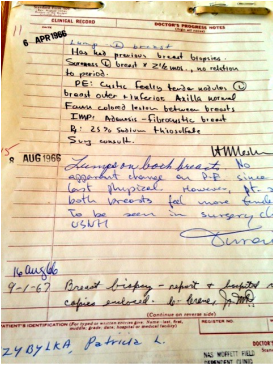 CLINICAL RECORD
DOCTOR'S PROGRESS NOTES
11
6 APR 1966
Lump L breast
Has had previous breast biopsies.
Soreness L breast x 2 1/2 mos., no relation
to period.
PE: Cystic feeling tender nodules L
breast outer + inferior Axilla normal
Fawn colored lesion between breasts
IMP: Adenosis - fibrocystic breast
Rx: 25% Sodium thiosulfate
Surg consult.
8 AUG 1966
Lumps on both breast. No
apparent change on P.P. since
last physical. However, pt. s
both breasts feel more tende
To be seen in surgery cl
USNH
16 Aug 66
9-1-67 Breast biopsy - report &
copies enclosed.
(Continue on reverse side)
PATIENT'S IDENTIFICATION (For typed or written entries give: Name - last, first,
middle; grade; date; hospital or medical facility)
REGISTER NO.
ZYBYLKA, Patricia L.
DOCTOR'S
NAS MOFFETT FIELD
DEPENDENT CLINIC